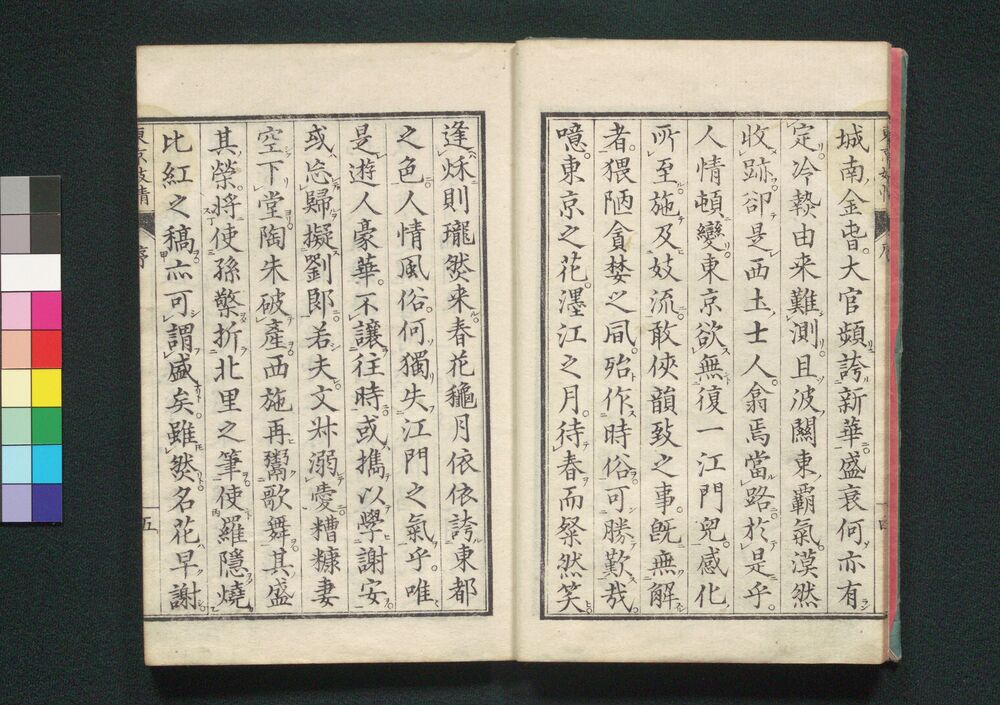 城南金昏大官頻誇新華盛衰何亦有
定冷𤍠由来難測且波關東霸氣漠然
收跡卻是西土士人翕焉當路於是乎
人情頓變東京欲無復一江門兒感化
所至施及妓流敢俠韻致之事既無解
者猥陋貪婪之風殆作時俗可勝歎哉
噫東京之花濹江之月待春而粲然笑
逢秌則瓏然来春花龝月依依誇東都
之色人情風俗何獨失江門之氣乎唯
是遊人豪華不讓往時或擕以學謝安
或忘歸擬劉郎若夫文叔溺憂糟糠妻
空下堂陶朱破產西施再鬻歌舞其盛
其榮將使孫棨折北里之筆使羅隱燒
比紅之稿亦可謂盛矣雖然名花早謝
東京妓情
序
五